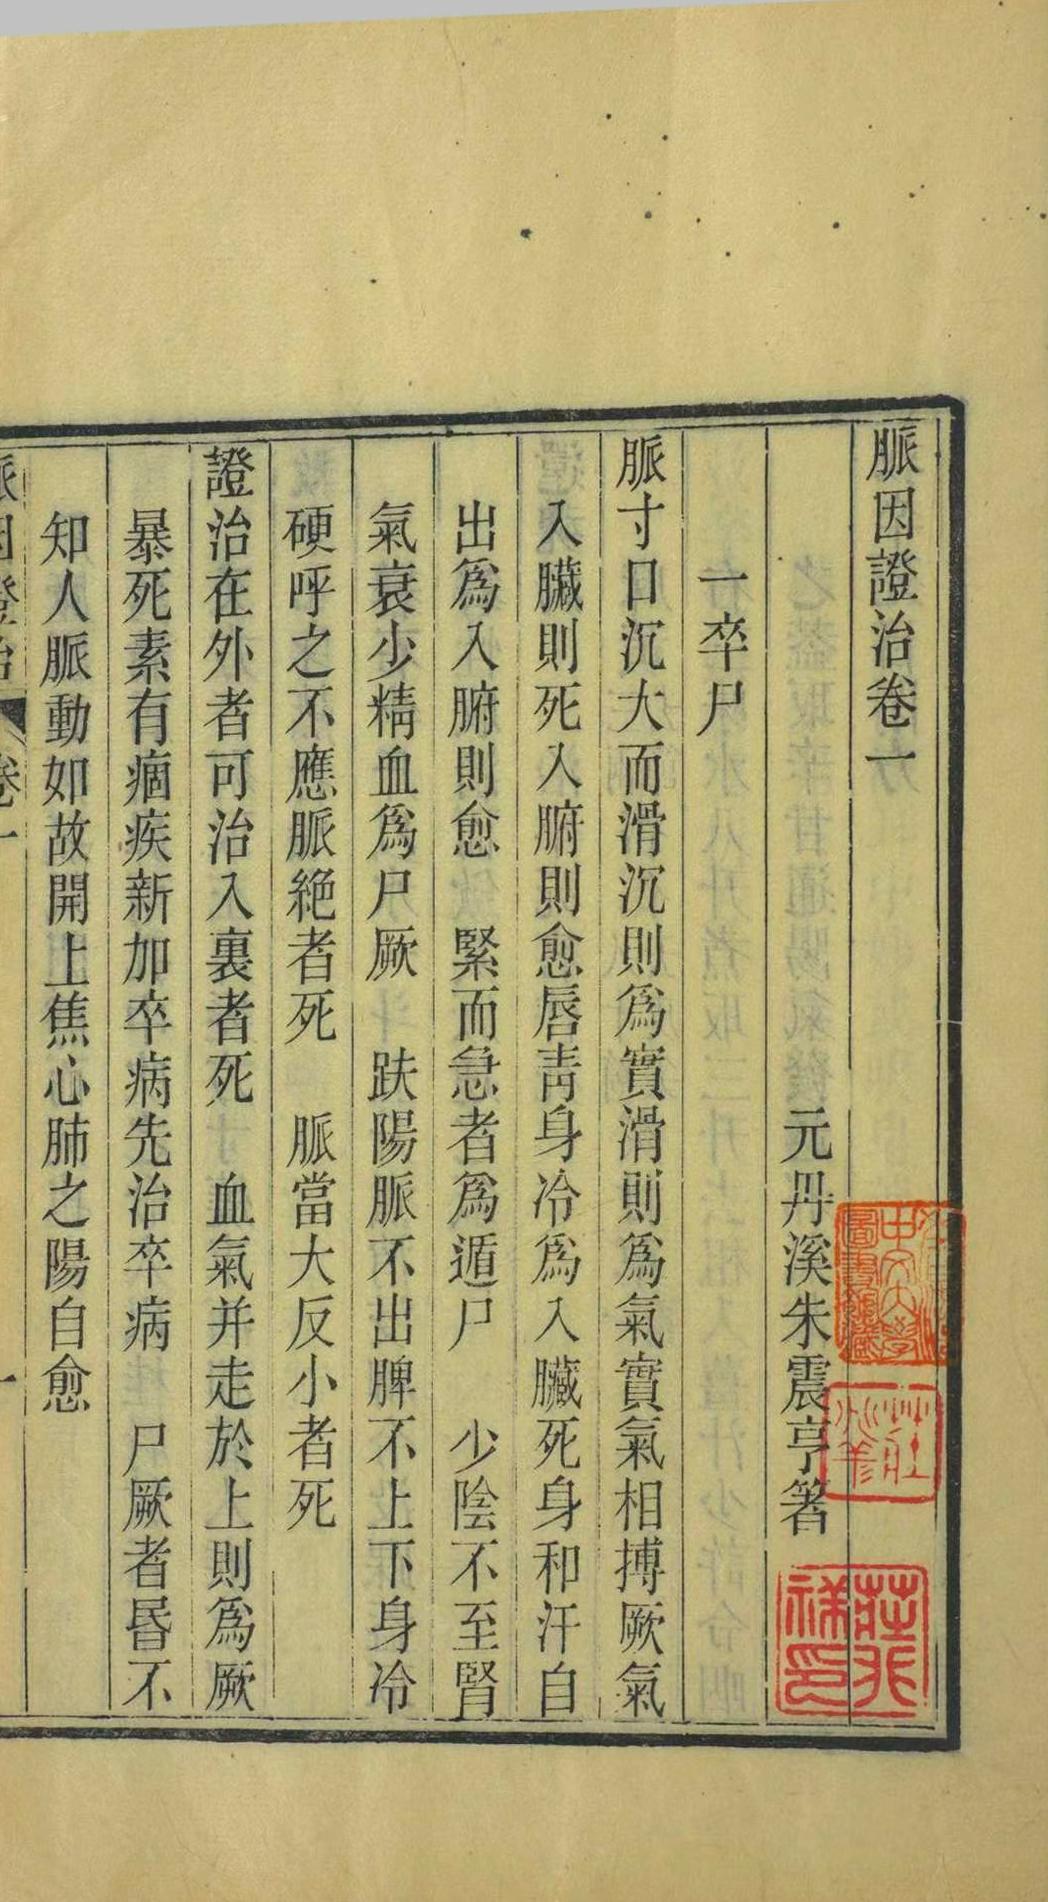 脈因證治卷一
元丹溪朱震亨著
一卒尸
脈寸口沉大而滑沉則爲實滑則爲氣實氣相搏厥氣
入臟則死入腑則愈唇靑身冷爲入臟死身和汗自
出爲入腑則愈　緊而急者爲遁尸　少陰不至腎
氣衰少精血爲尸厥　趺陽脈不出脾不上下身冷
硬呼之不應脈絕者死　脈當大反小者死
證治在外者可治入裏者死　血氣并走於上則爲厥
暴死素有痼疾新加卒病先治卒病　尸厥者昏不
知人脈動如故開上焦心肺之陽自愈
脈因證治　卷一　一
莊兆祥印